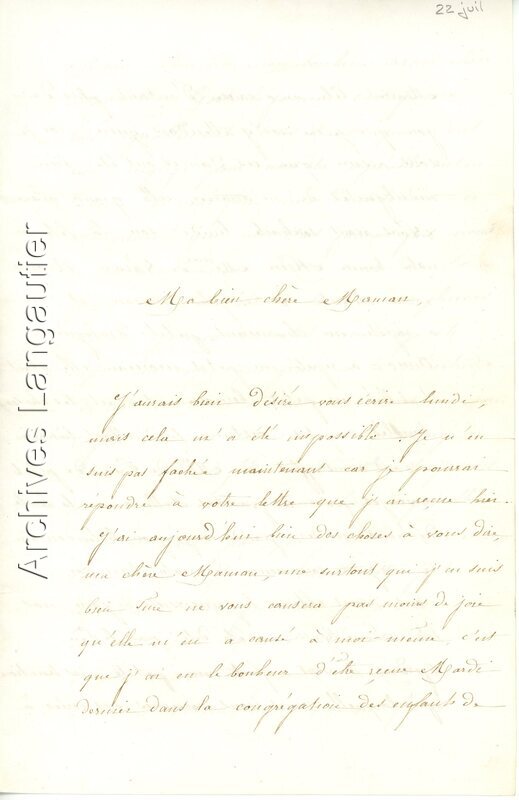 22 juil
Ma bien chère Maman,
J'aurais bien désiré vous écrire lundi,
mais cela m'a été impossible. Je n'en
suis pas fachée maintenant car je pourrai
répondre à votre lettre que j'ai reçue hier.
J'ai aujourd'hui bien des choses à vous dire,
ma chère Maman, une surtout qui j'en suis
bien sure ne vous causera pas moins de joie
qu'elle m'en a causé à moi-même, c'est
que j'ai eu le bonheur d'être reçue Mardi
dernier dans la congrégation des enfants de
Archives Langautier